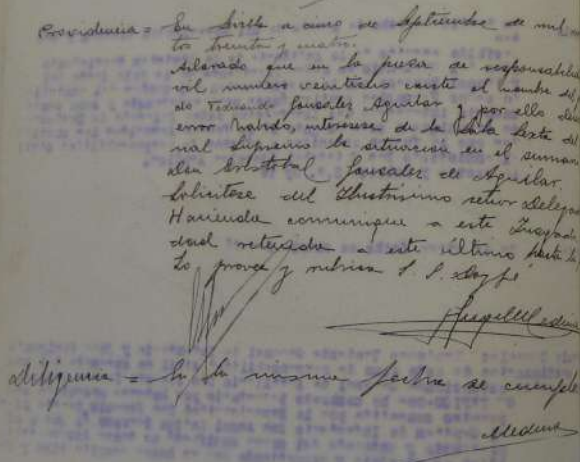 Providencia = En Sevilla a cinco de Septiembre de mil
tos treinta y cuatro.
Aclarado que en la pieza de responsabilid
vil numero veintiocho existe el nombre del
do Fernando Gonzalez Aguilar y por ello
error habido, interesese de la Sala Sexta del
nal Supremo la situacion en el sumari
Don Cristobal Gonzalez de Aguilar.
Solicitese del Ilustrisimo señor Delega
Hacienda comunique a este Juzgado
dad retenida a este ultimo hasta la
Lo provee y rubrica S. S. Doy fe
Diligencia = En la misma fecha se cumple
Medina